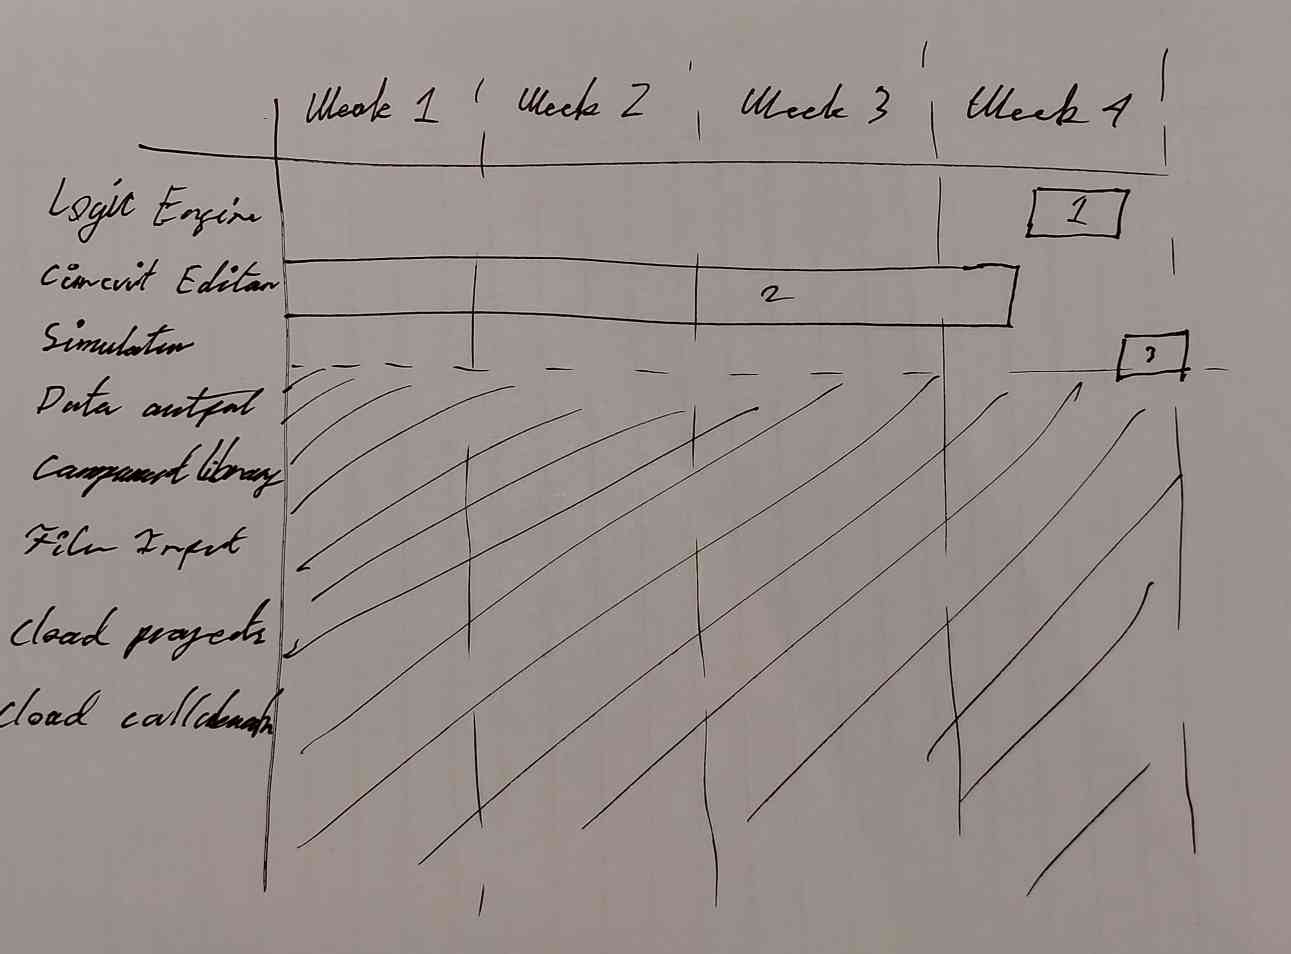 Week 1 Week 2 Week 3 Week 4
Logic Engine 1
Circuit Editor 2
Simulator 3
Data output
Component library
File Input
Cload projects
Cload